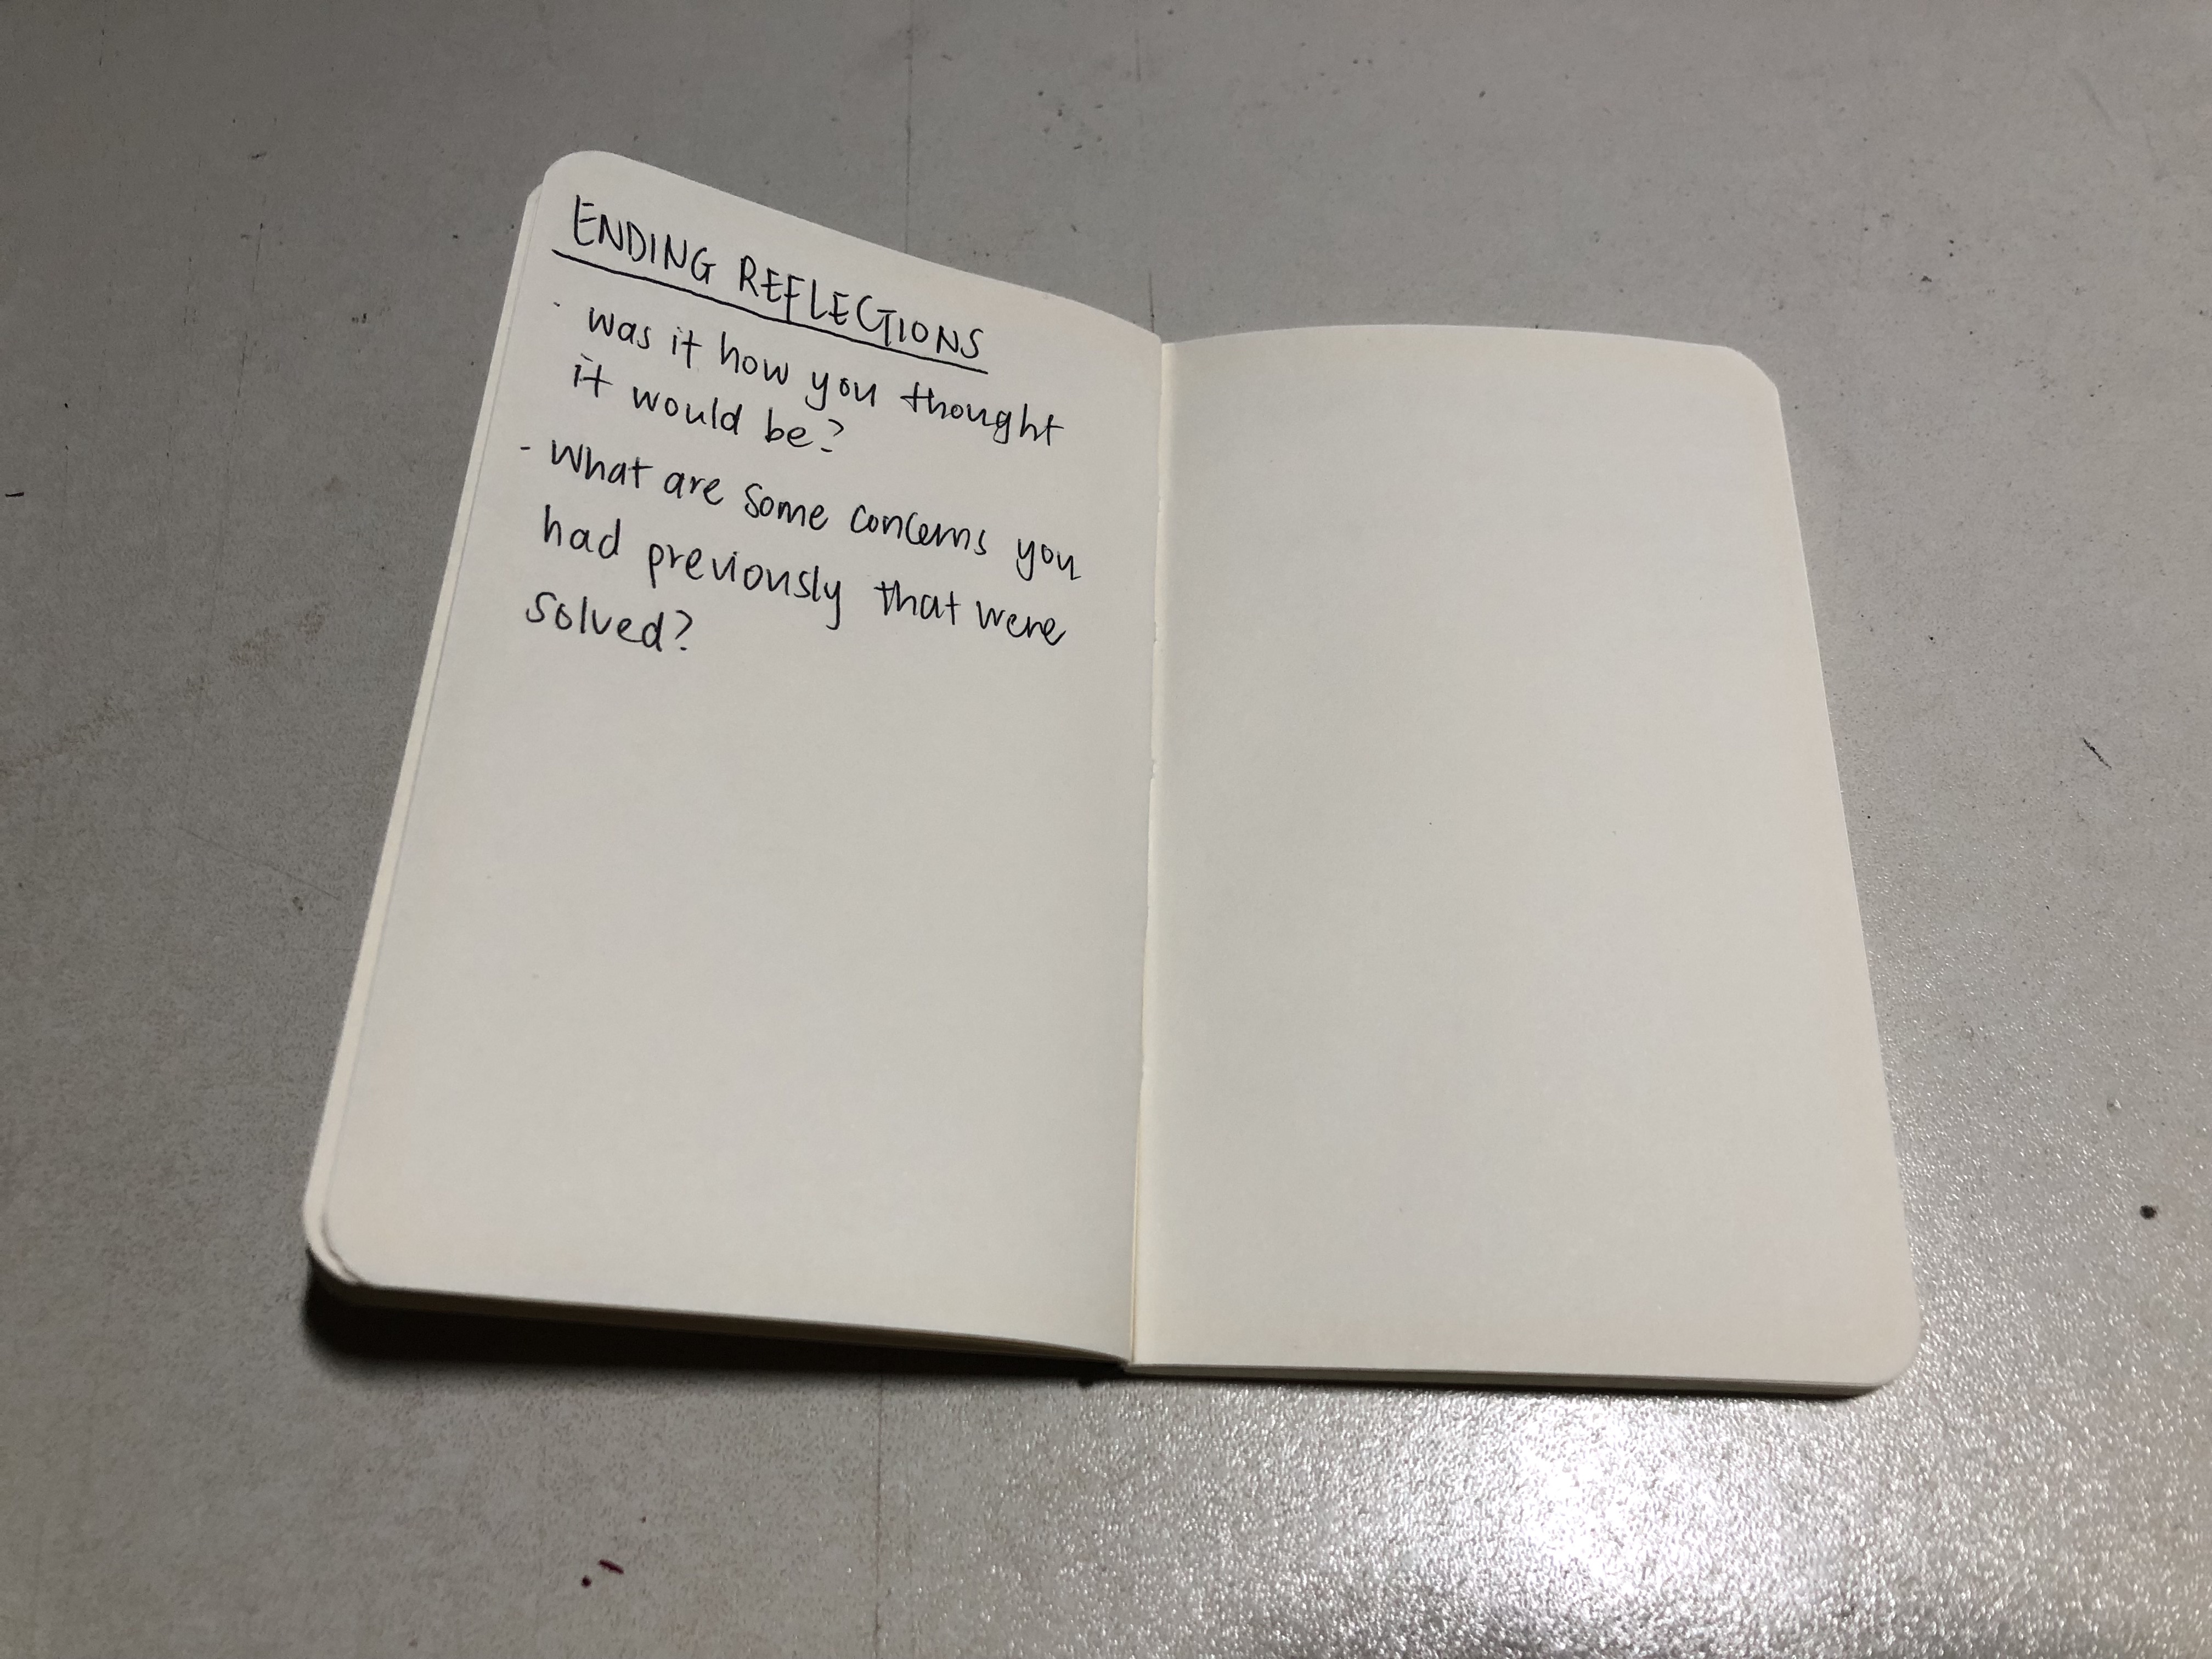 ENDING REFLECTIONS
- was it how you thought
it would be?
- What are some concerns you
had previously that were
solved?